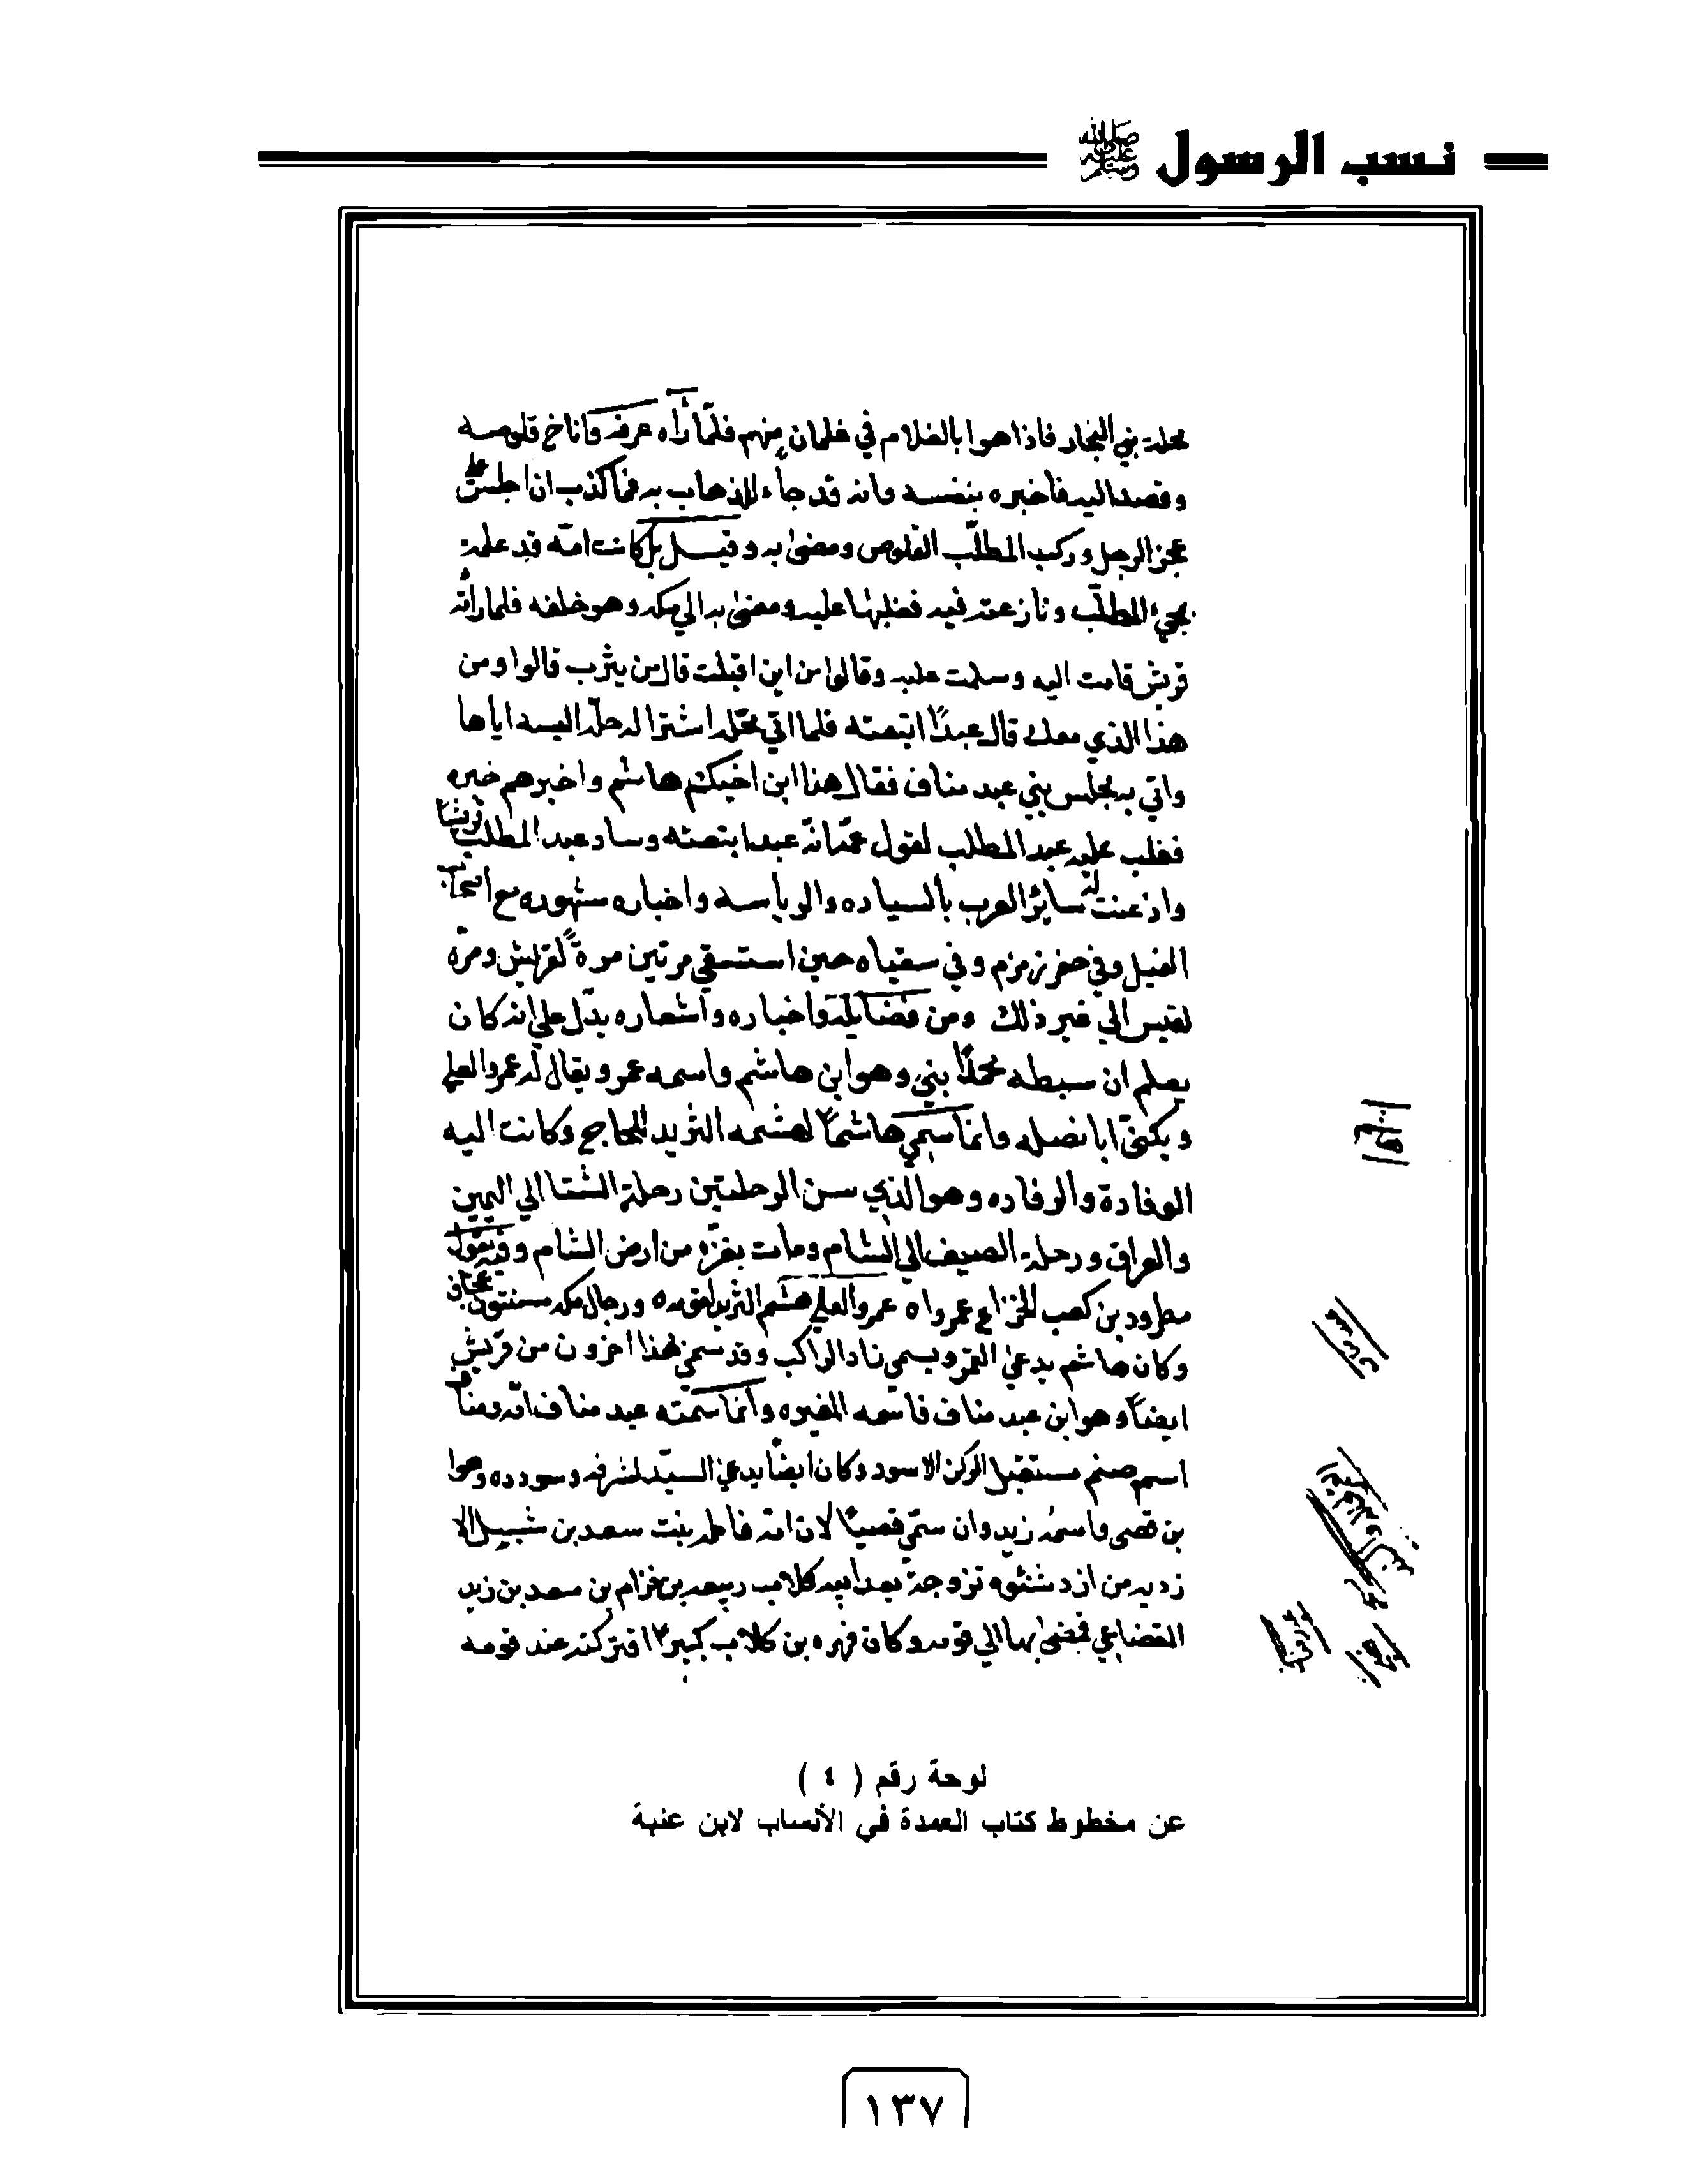 نسب الرسول ﷺ
محلة بني النجار فاذا هوا بالغلام في غلمان منهم فلمّا رآه عرفه واناخ قلوصه
وقصد اليه فاخبره بنفسه وانه قد جاء للاذهاب به فما كذب ان اجلس على
عجز الرحل وركب المطلّب القلوص ومضى به وقيل بل كانت امّه قد علمة
بمجيء المطلّب ونازعته فيه فغلبها عليه ومضى به الي مكه وهو خلفه فلما راته
قريش قامت اليه وسلمت عليه وقالوا من اين اقبلت قال من يثرب قالوا ومن
هذا الذي معك قال عبدًا ابتعته فلما اتي محلّه اشترا له حلّه البسه اياها
واتي به مجلس بني عبد مناف فقال هذا ابن اخيكم هاشم واخبرهم خبره
فغلب عليه عبد المطلب لقول عمّه انّه عبد ابتعته وساد عبد المطلب قريشا
واذعنت له سائر العرب بالسياده والرياسه واخباره مشهوره مع اصحاب
الفيل وفي حفر زمزم وفي سقياه حين استسقي مرتين مرةً لقريش ومرّه
لقيس الي غير ذلك ومن فضايله واخباره واشعاره يدّل علي انه كان
يعلم ان سبطه محمدًا نبيّ وهو ابن هاشم واسمه عمرو يقال له عمرو العلي
ويكنّى ابا نضله وانما سمّي هاشمًا لهشمه الثريد للحاج وكانت اليه
الوفادة والرفاده وهو الذي سن الرحلتين رحلة الشتا الي اليمن
والعراق ورحلة الصيف الي الشام ومات بغزّه من ارض الشام وفيه يقول
مطرود بن كعب الخزاعي عمرواه عمرو العلي هشم الثريد لقومه ورجال مكه مسنتون عجاف
وكان هاشم يدعى القمر ويسمى زاد الراكب وقد سمي بهذا اخرون من قريش
ايضاً وهو ابن عبد مناف فاسمه المغيره وانما سمّته عبد مناف امّه ومناف
اسم صنم مستقبل الركن الاسود وكان ايضًا يدعى السيّد لشرفه وسودده وهوا
بن قصى واسمهُ زيد وان سمّي قصيًا لان امه فاطمه بنت سعد بن شبيل الا
زديه من ازد شنئوه تزوجة بعد ابيه كلاب ربيعه بن حزام بن سعد بن زيد
القضاعي فمضى بها الي قومه وكان زهره بن كلاب كبيرًا فتركته عند قومه
لوحة رقم ( ٤ )
عن مخطوط كتاب العمدة في الأنساب لابن عنبة
١٣٧